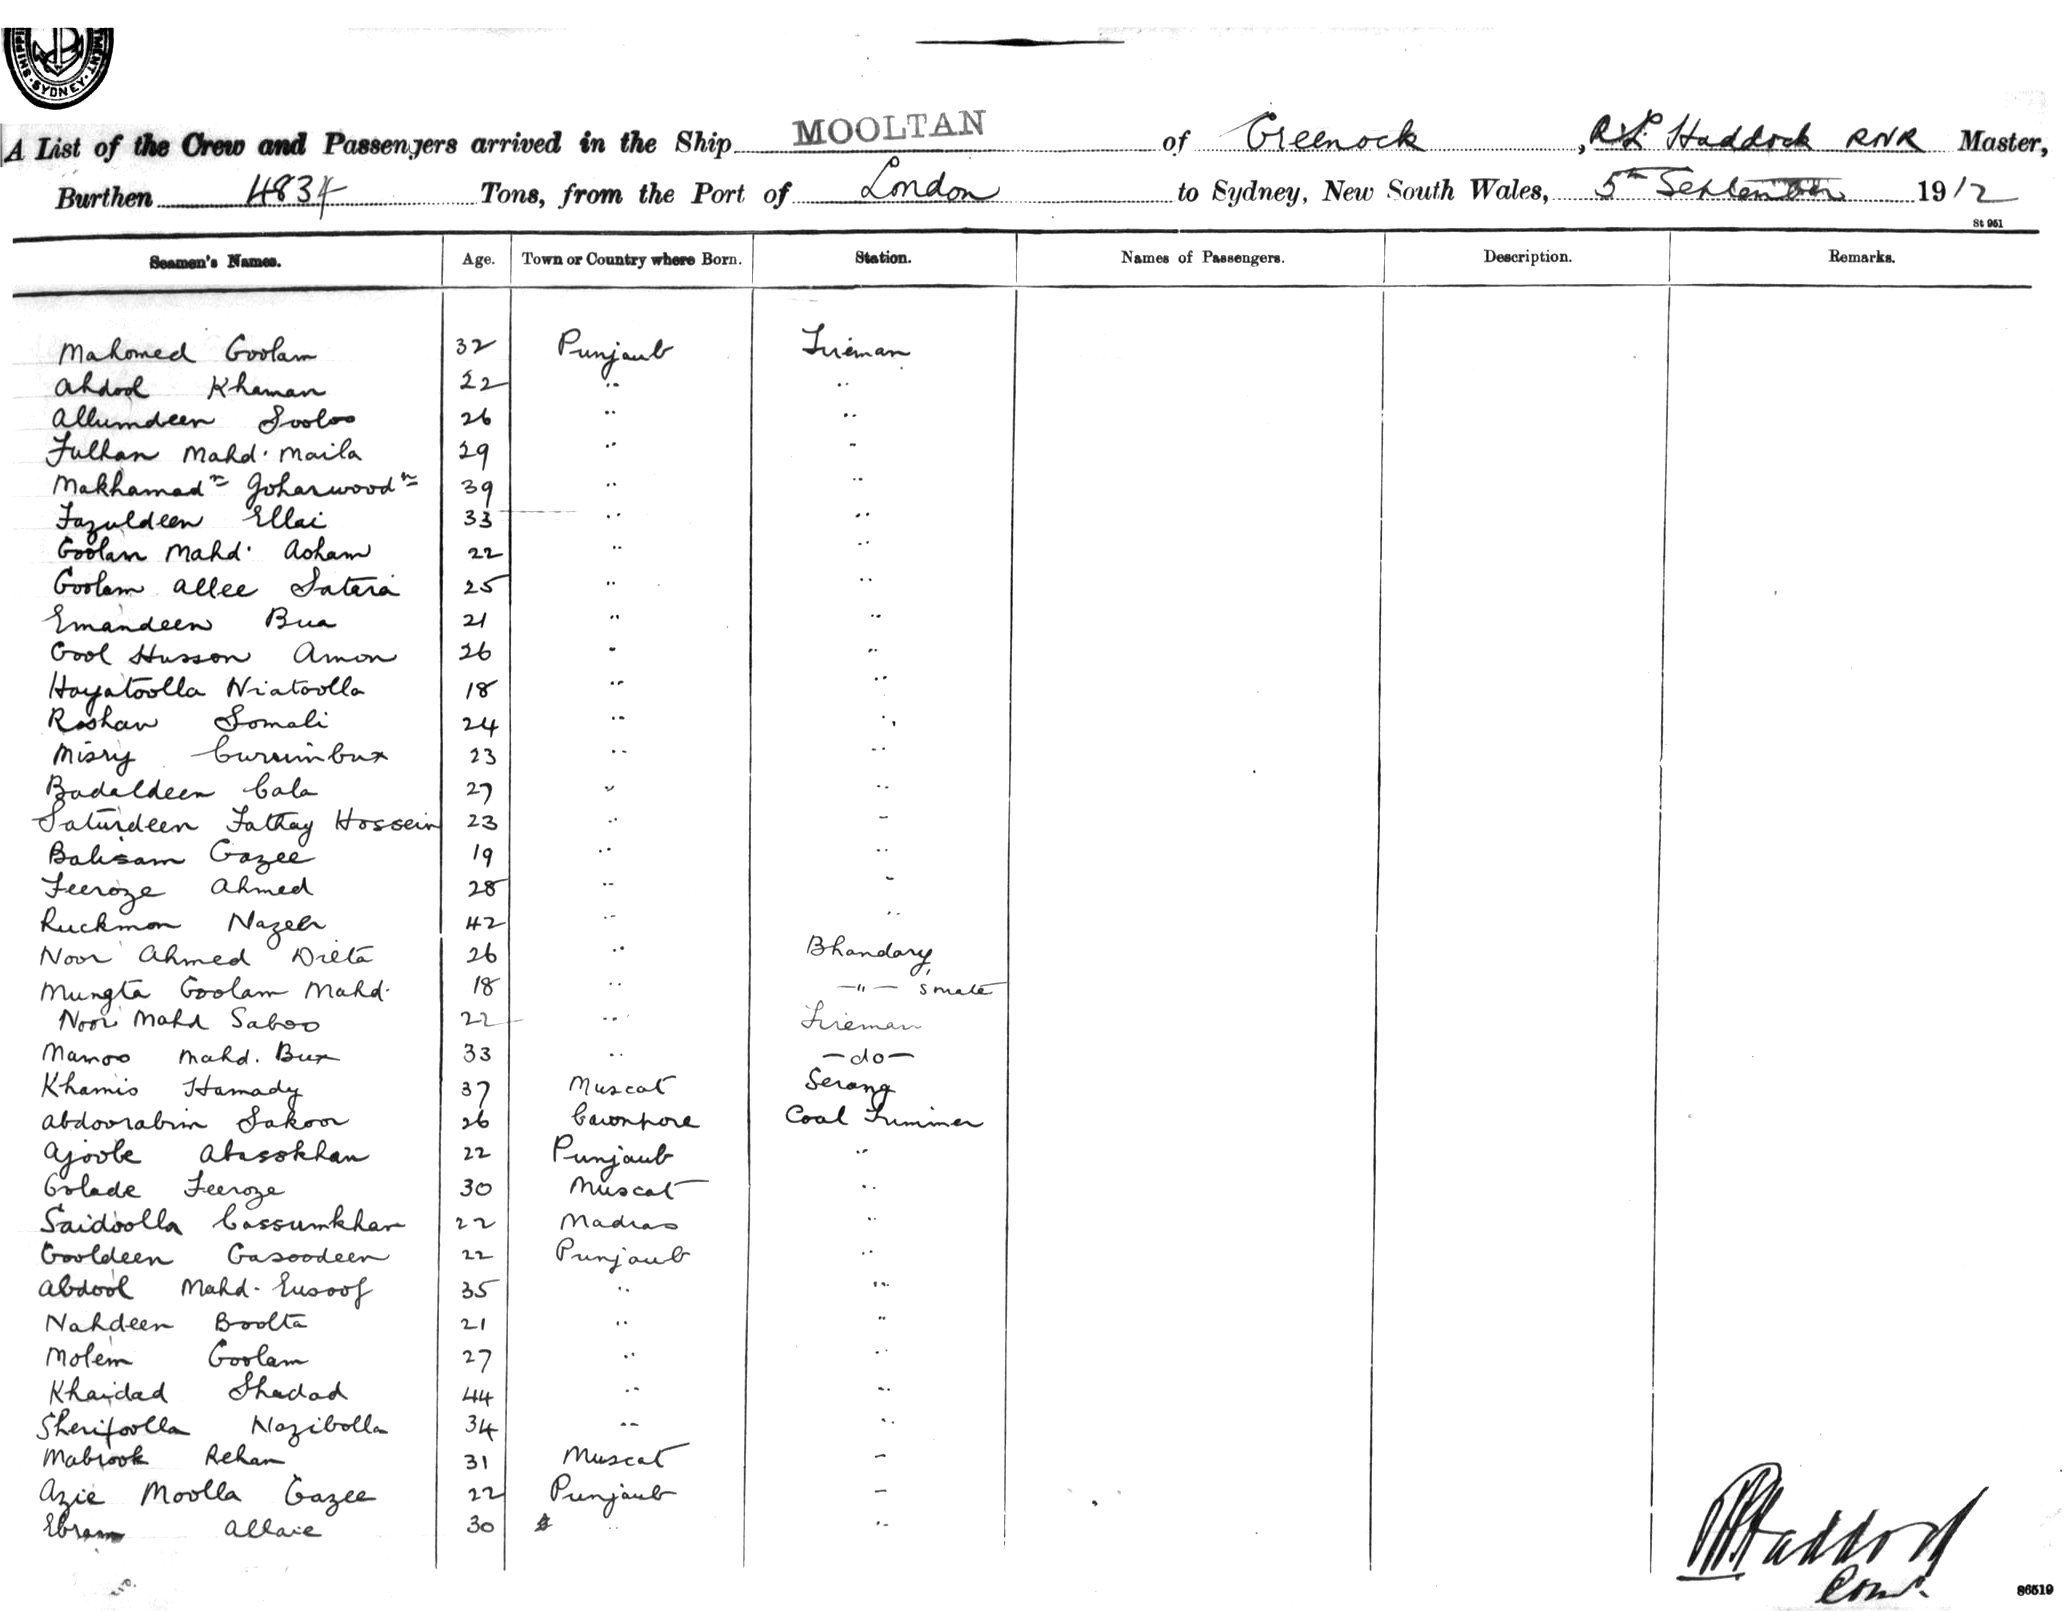 SHIPPING SYDNEY MENT
A List of the Crew and Passengers arrived in the Ship MOOLTAN of Greenock, R L Haddock RNR Master,
Burthen 4834 Tons, from the Port of London to Sydney, New South Wales, 5th September 1912
St 961
Seamen's Names. Age. Town or Country where Born. Station. Names of Passengers. Description. Remarks.
Mahomed Goolam 32 Punjaub Fireman
Ahdool Khaman 22 " "
Allumdeen Sooloo 26 " "
Fulkan Mahd. Maila 29 " "
Makhamadn Goharwoodn 39 " "
Fazuldeen Ellai 33 " "
Goolam Mahd. Acham 22 " "
Goolam Allee Satara 25 " "
Emandeen Bua 21 " "
Gool Husson Amon 26 " "
Hayatoolla Niatoolla 18 " "
Roshan Somali 24 " "
Misry Currimbux 23 " "
Badaldeen Cala 27 " "
Saturdeen Fathay Hossein 23 " "
Balisam Gazee 19 " "
Feeroze Ahmed 28 " "
Ruckmon Nazeer 42 " "
Noor Ahmed Ditta 26 " Bhandary
Mungta Goolam Mahd. 18 " —"— s mate
Noor Mahd Saboo 22 " Fireman
Mamoo Mahd. Bux 33 " —do—
Khamis Hamady 37 Muscat Serang
Abdoorabim Sakoor 26 Cawnpore Coal Trimmer
Ajoobe Abasokhan 22 Punjaub "
Golade Feeroze 30 Muscat "
Saidoolla Cassumkhan 22 Madras "
Gooldeen Gasoodeen 22 Punjaub "
Abdool Mahd. Eusoof 35 " "
Nahdeen Boolta 21 " "
Molem Goolam 27 " "
Khaidad Shadad 44 " "
Sherifoolla Nazibolla 34 " "
Mabrook Rehan 31 Muscat "
Azie Moolla Gazee 22 Punjaub "
Ebram Allaie 30 " "
Haddock
Comr.
86519